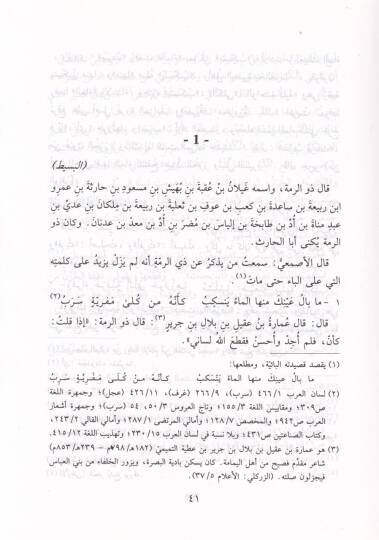 - 1 -
(البسيط)
قال ذو الرمة، واسمه غَيلانُ بنُ عُقبة بنِ بُهَيش بنِ مسعودِ بنِ حارثَةَ بنِ عمرِو
ابن ربيعةَ بن ساعدةَ بنِ كعبِ بن عوفِ بن ثعلبةَ بن ربيعةَ بن مِلكانَ بن عديِّ بنِ
عبدِ مناةَ بن أُدِّ بن طابخةَ بن إلياسَ بن مُضرَ بنِ أُدِّ بن معد بن عدنان. وكان ذو
الرمة يُكنى أبا الحارث.
قال الأصمعيُّ: سمعتُ من يذكرُ عن ذي الرمّةِ أنه لم يَزَلْ يزيدُ على كلمتِهِ
التي على الباء حتى مات(١).
١ - ما بالُ عَيْنِكَ منها الماءُ يَنسكِبُ كأنّهُ من كُلىً مَفريّةٍ سَرَبُ(٢)
قال: قال عُمارةُ بنُ عقيلِ بنِ بلالِ بنِ جريرٍ(٣): قال ذو الرمة: «إذا قلتُ:
كأنْ، فلم أجِدْ وأُحسنْ فقطعَ اللهُ لساني».
(١) يقصد قصيدته البائيّة، ومطلعها:
ما بالُ عينكَ منها الماءُ يَنْسَكِبُ كأنّه من كُلىً مَفْريّةٍ سَرَبُ
(٢) لسان العرب ٤٦٦/١ (سرب)، ٢٦٦/٩ (غرف)، ٤٢٦/١١ (عجل)؛ وجمهرة اللغة
ص٣٠٩؛ ومقاييس اللغة ١٥٥/٣؛ وتاج العروس ٥٠/٣، ٥٤ (سرب)؛ وجمهرة أشعار
العرب ص٩٤٢؛ والمخصص ١٢٨/٧؛ وأمالي المرتضى ٢٨٧/١؛ وأمالي القالي ٢٤٣/٢،
وكتاب الصناعتين ص٤٣١؛ وبلا نسبة في لسان العرب ٢٣٠/١٥؛ وتهذيب اللغة ٤١٥/١٢.
(٣) هو عمارة بن عقيل بن بلال بن جرير بن عطية التميميّ (١٨٢هـ/٧٩٨م - ٢٣٩هـ/٨٥٣م)
شاعر مقدّم فصيح من أهل اليمامة. كان يسكن بادية البصرة، ويزور الخلفاء من بني العباس
فيجزلون صلته. (الزركلي: الأعلام ٣٧/٥).
٤١